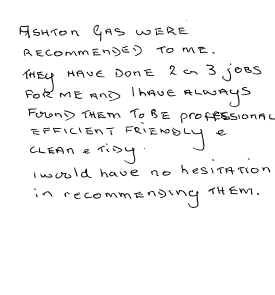 ASHTON GAS WERE
RECOMMENDED TO ME.
THEY HAVE DONE 2 or 3 jOBS
FOR ME AND I HAVE ALWAYS
FOUND THEM TO BE PROFESSIONAL
EFFICIENT FRIENDLY &
CLEAN & TIDY.
I would have no hesitation
in recommending THEM.